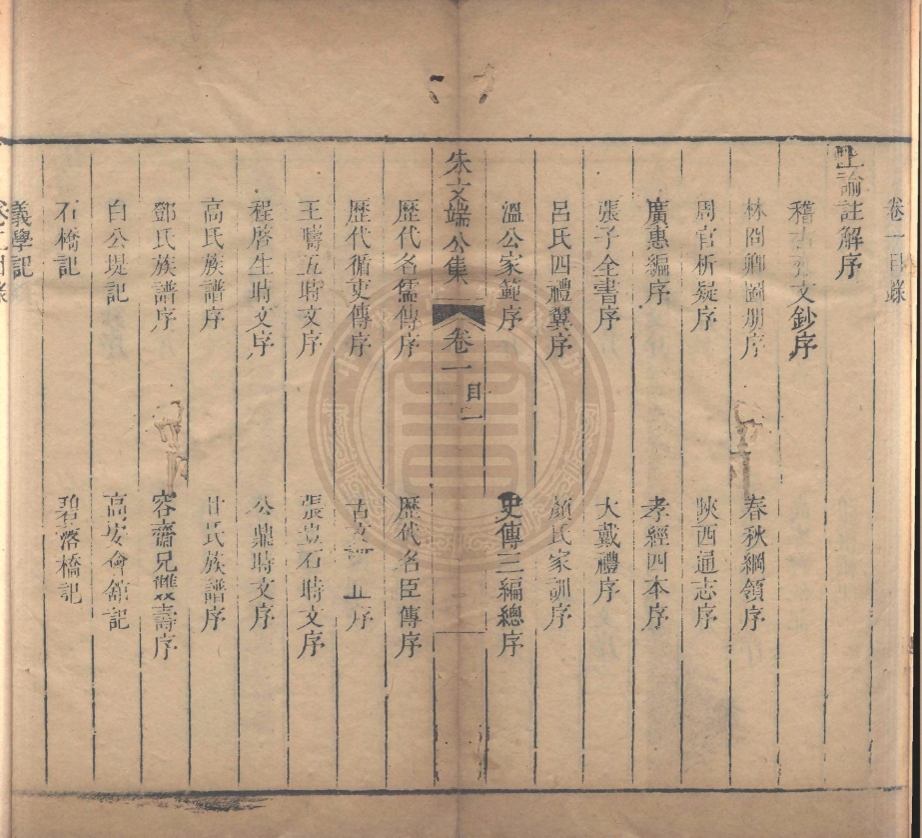 卷一目錄
聖諭註解序
稽古齋文鈔序
林冏卿圖册序
春秋綱領序
周官析疑序
陝西通志序
廣惠編序
孝經四本序
張子全書序
大戴禮序
呂氏四禮翼序
顏氏家訓序
溫公家範序
史傳三編總序
朱文端公集
卷一
目一
歷代名儒傳序
歷代名臣傳序
歷代循吏傳序
古文
序
王疇五時文序
張豈石時文序
程啓生時文序
公鼎時文序
高氏族譜序
甘氏族譜序
鄧氏族譜序
容齋兄雙壽序
白公堤記
高安會館記
石橋記
碧落橋記
義學記